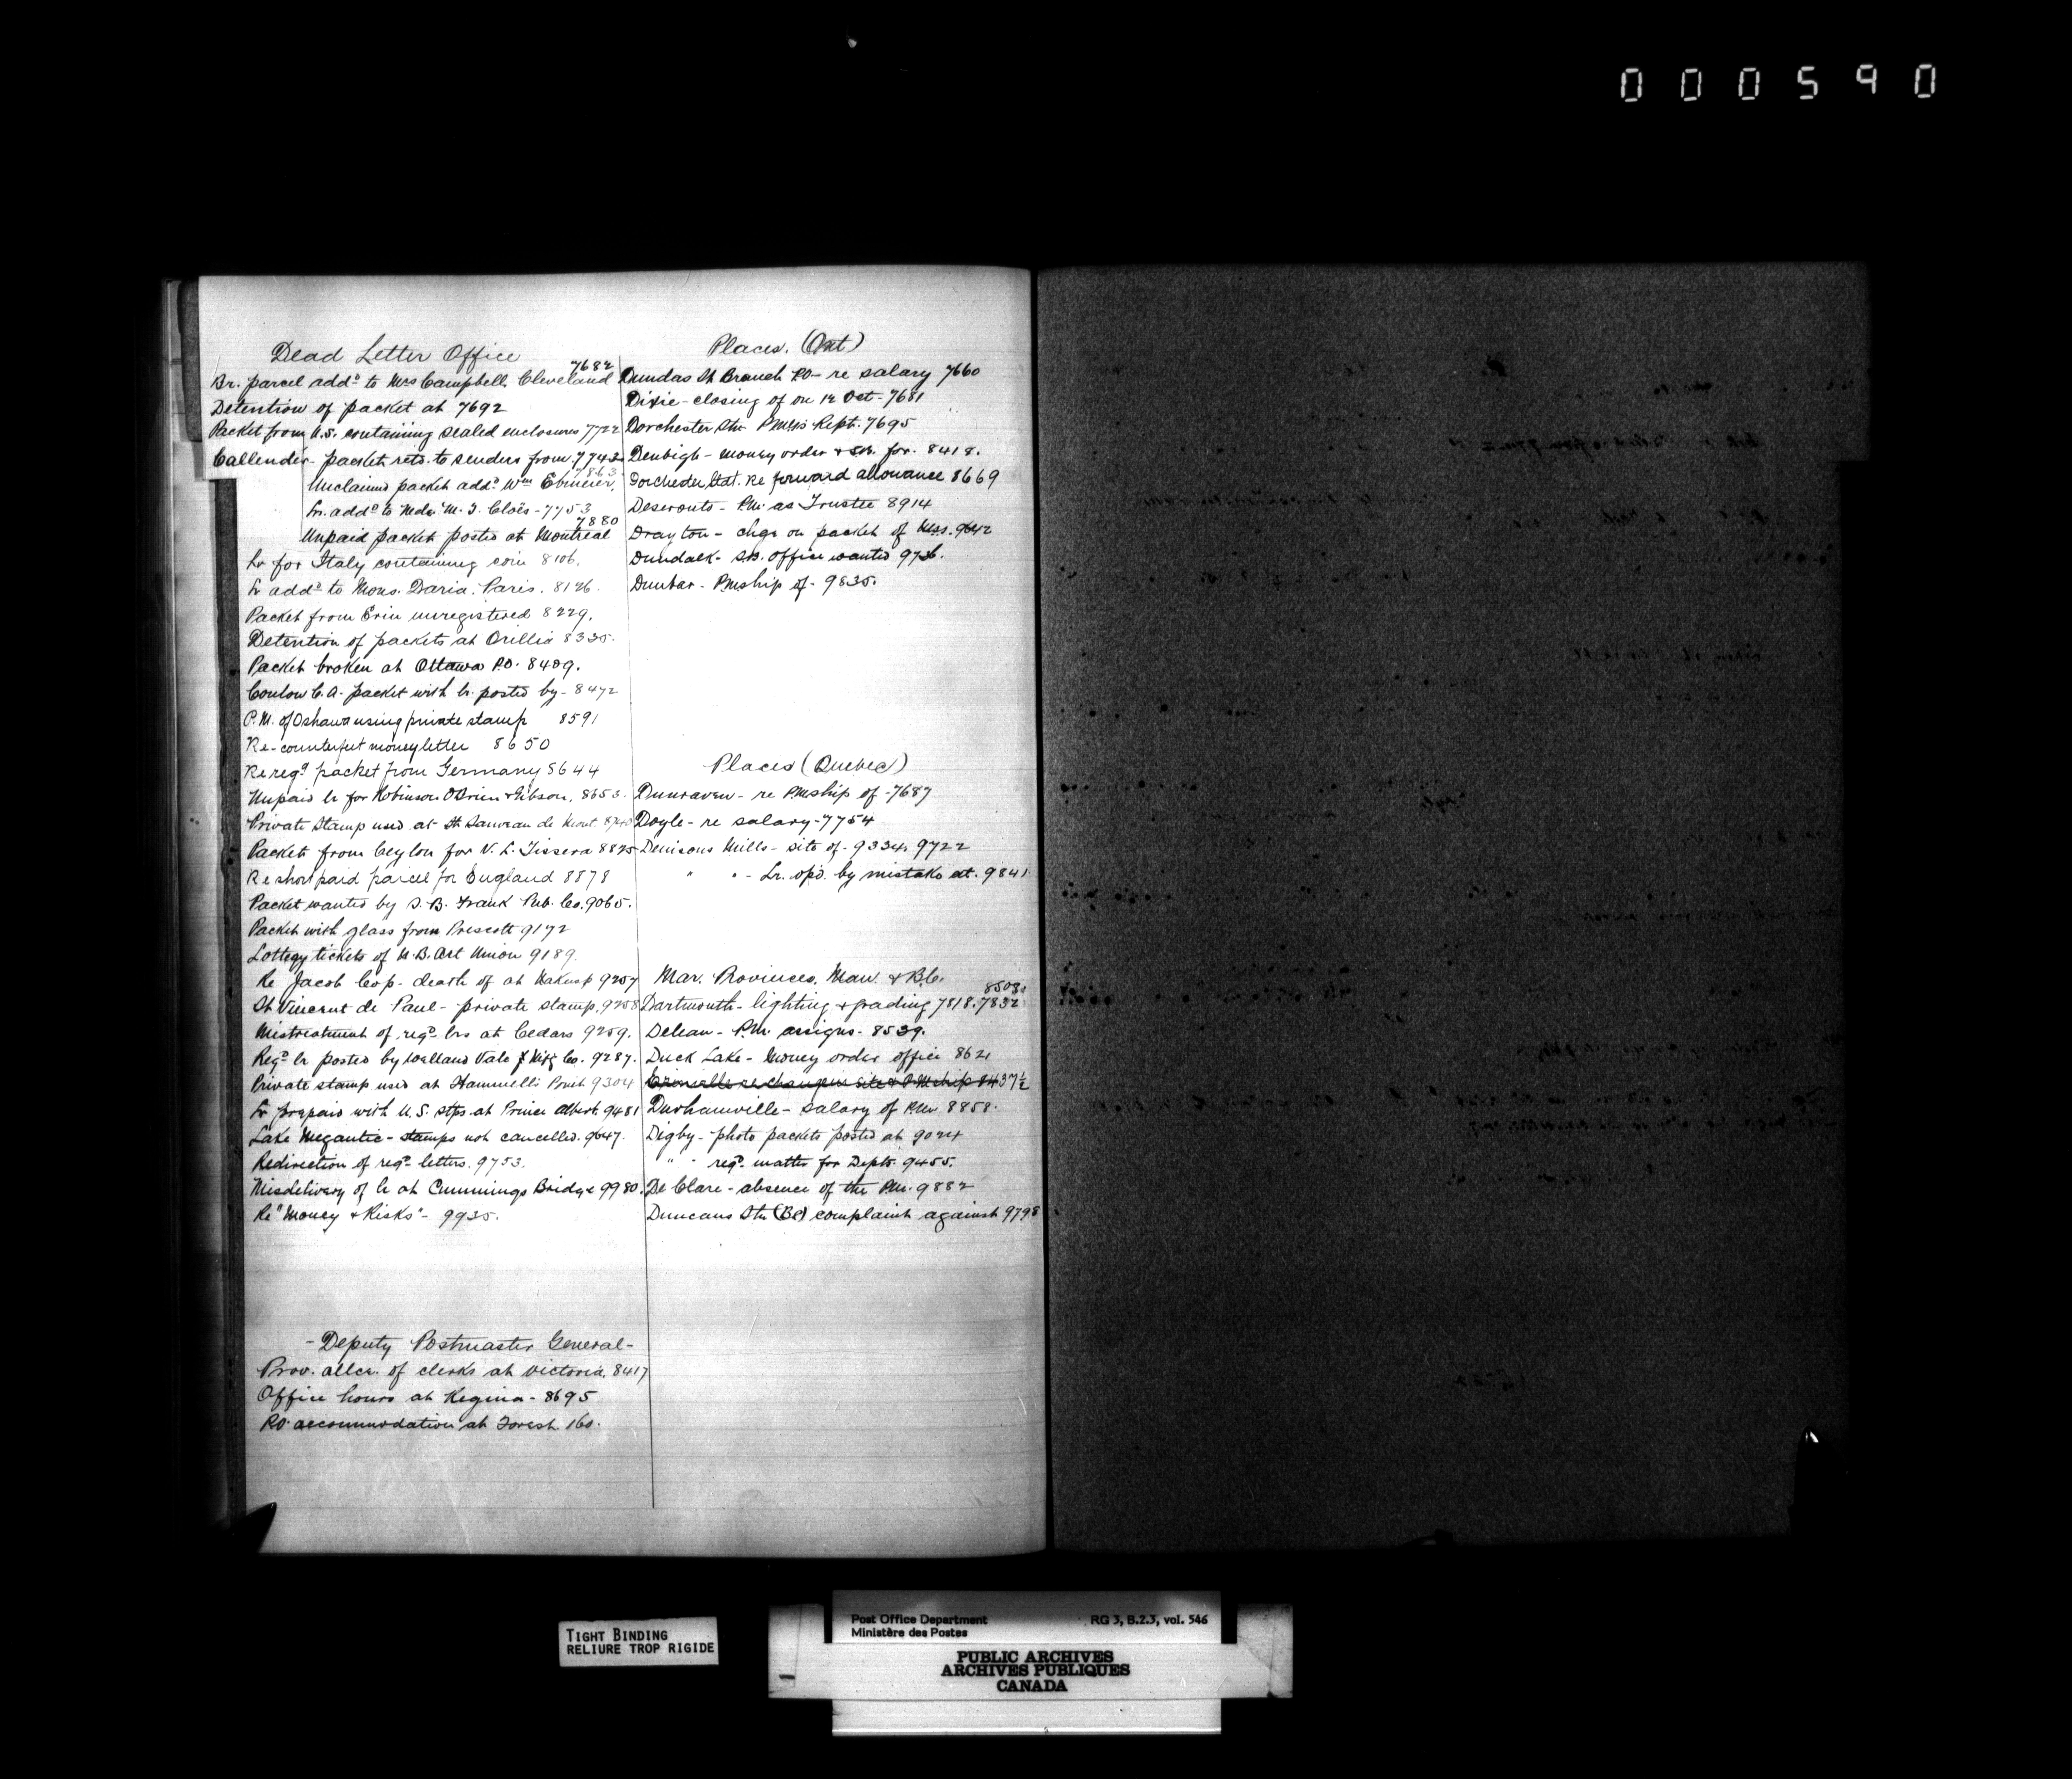 000590
Dead Letter Office
Br. parcel addd to Mrs Campbell Cleveland 7682
Detention of packet at 7692
Packet from U.S. containing sealed enclosures 7722
Callender - packet retd. to senders from. 7743
7863
Unclaimed packet addd Wm
Lr. addd to M. J. Cloës - 7753
7880
Unpaid packet posted at Montreal
Lr for Italy containing coin 8106.
Lr addd to Mons. Daria. Paris. 8126.
Packet from Erin unregistered 8229.
Detention of packets at Orillia 8335.
Packet broken at Ottawa P.O. 8409.
Conlow C.A. packet with lr. posted by - 8472
P.M. of Oshawa using private stamp 8591
Re - counterfeit money letter 8650
Re regd packet from Germany 8644
Unpaid lr for Robinson O'Brien & Gibson. 8653.
Private Stamp used at St
Packet from Ceylon for V. L. Tissera 8825
Re short paid parcel for England 8878
Packet wanted by S. B. Frank Pub. Co. 9065.
Packet with glass from Prescott 9172
Lottery tickets of N.B. Art Union 9189.
Re Jacob Cop - death of at Nakusp 9257
St Vincent de Paul - private stamp. 9258
Mistreatment of regd lrs at Cedars 9259.
Regd lr posted by Welland Vale Mfg Co. 9287.
Private stamp used at 9304
Lr prepaid with U.S. stps at Prince Albert. 9481
Lake Megantic - stamps not cancelled. 9647.
Redirection of regd letters. 9753.
Misdelivery of lr at Cummings Bridge 9980.
Re "Money & Risks" - 9935.
- Deputy Postmaster General -
Prov. allce. of clerks at Victoria. 8417
Office hours at Regina - 8695
P.O. accommodation at Forest 160.
Places. (Ont)
Dundas St Branch P.O - re salary 7660
Dixie - closing of on 12 Oct - 7681
Dorchester Stn P.M.'s Rept. 7695
Denbigh - money order & S.B. for. 8418.
Dorchester Stat. Re forward allowance 8669
Deseronto - P.M. as Trustee 8914
Drayton - chge on packet of Mss. 9642
Dundalk - S.B. office wanted 9736.
Dunbar - P.M.ship of - 9835.
Places (Quebec)
Dunraven - re P.M.ship of - 7687
Doyle - re salary - 7754
Denisons Mills - site of - 9334. 9722
" " - Lr. op'd. by mistake at. 9841
Mar. Provinces, Man. & B.C.
8508.
Dartmouth - lighting & grading 7818. 7832
Deleau - P.M. assigns. 8539.
Duck Lake - Money order office 8621
re change in site & P.M.ship 8437½
Durhamville - salary of P.M. 8858.
Digby - photo packets posted at 9024
" " regd. matter for Depts. 9455.
De Clare - absence of the P.M. 9882
Duncans Stn (BC) complaint against 9798
TIGHT BINDING
RELIURE TROP RIGIDE
Post Office Department RG 3, B.2.3, vol. 546
Ministère des Postes
PUBLIC ARCHIVES
ARCHIVES PUBLIQUES
CANADA